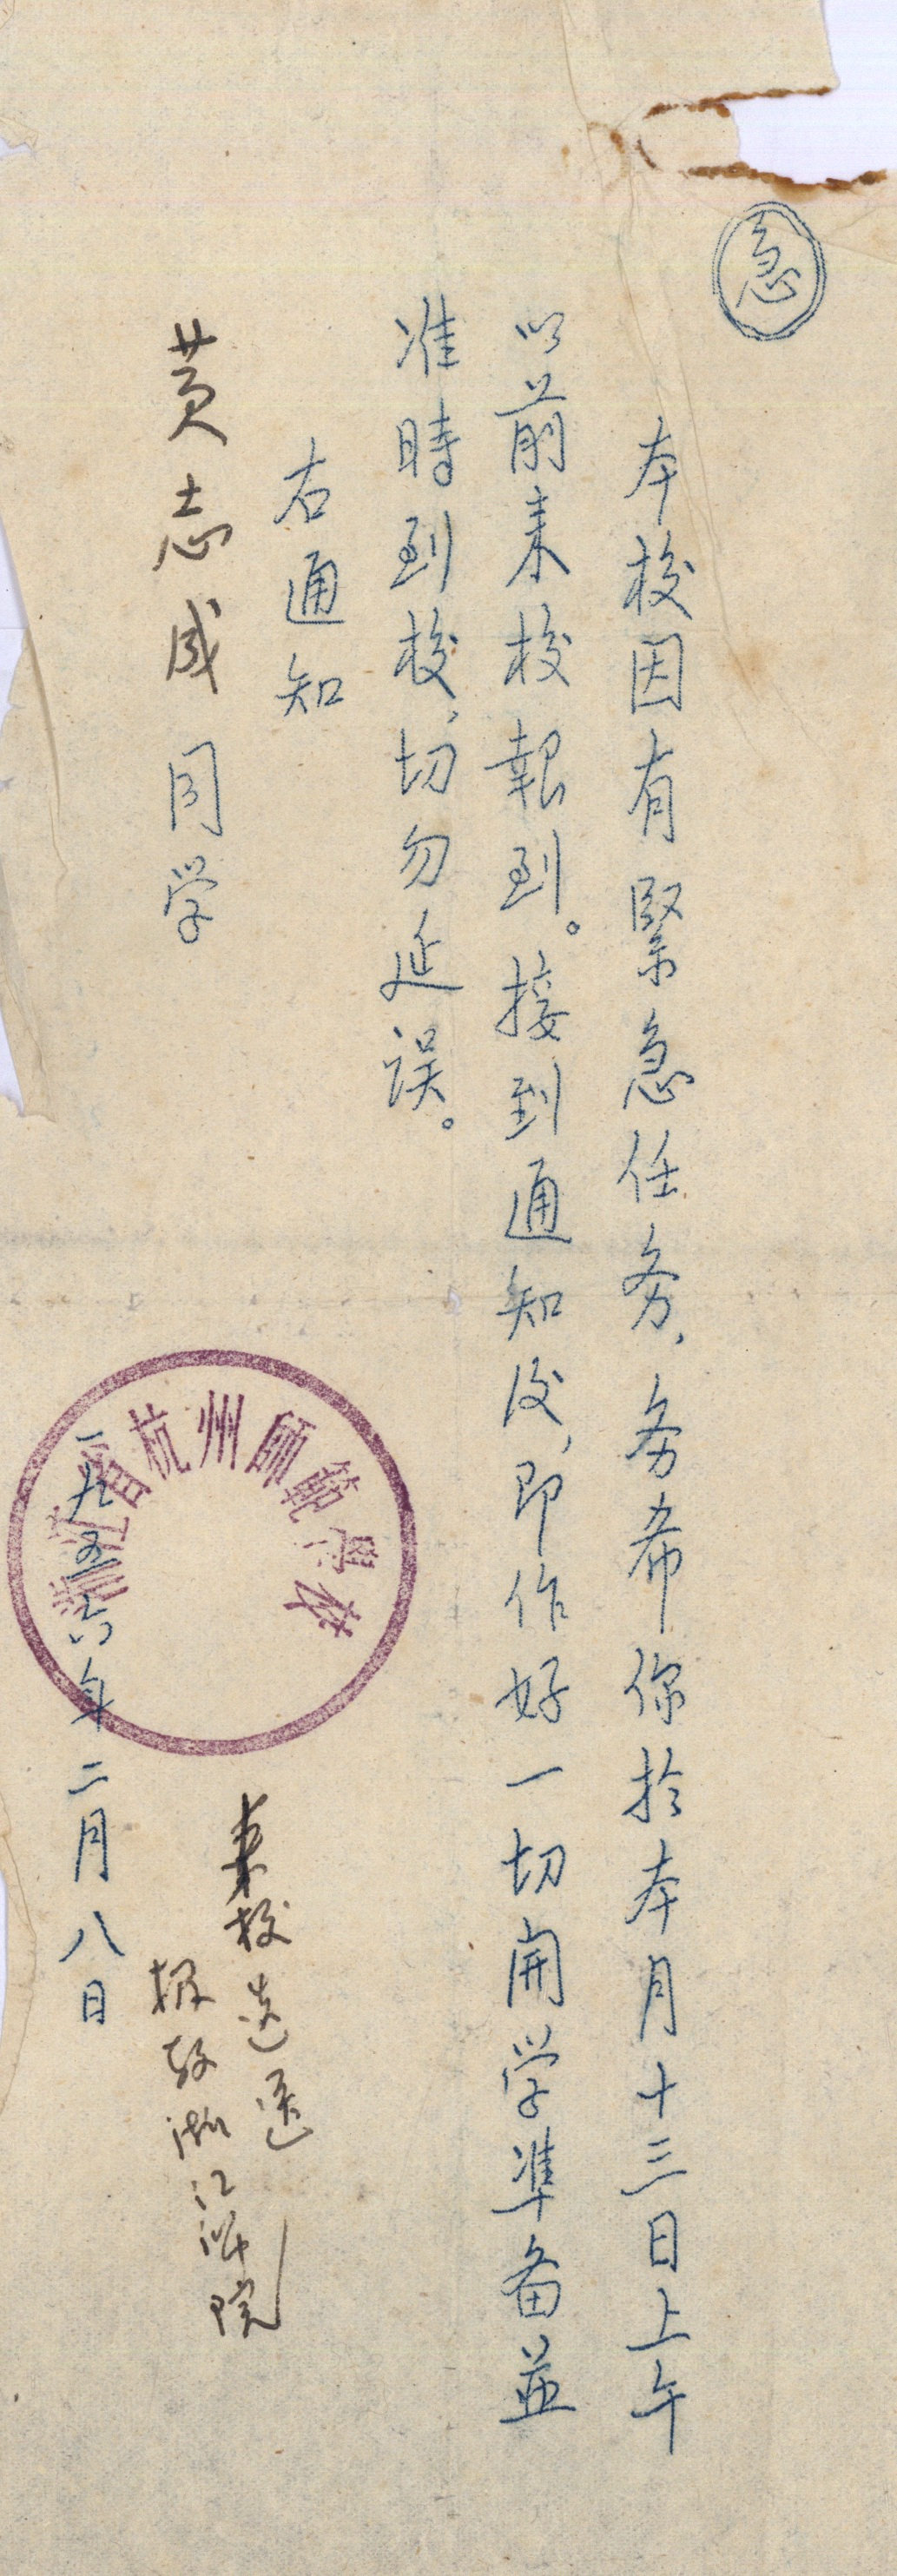 急
本校因有緊急任务，务希你於本月十三日上午
以前来校報到。接到通知后，即作好一切開学準备並
准時到校，切勿延误。
右通知
黄志成同学
浙江省杭州師範学校
来校选送
报考浙江师院
一九五六年二月八日